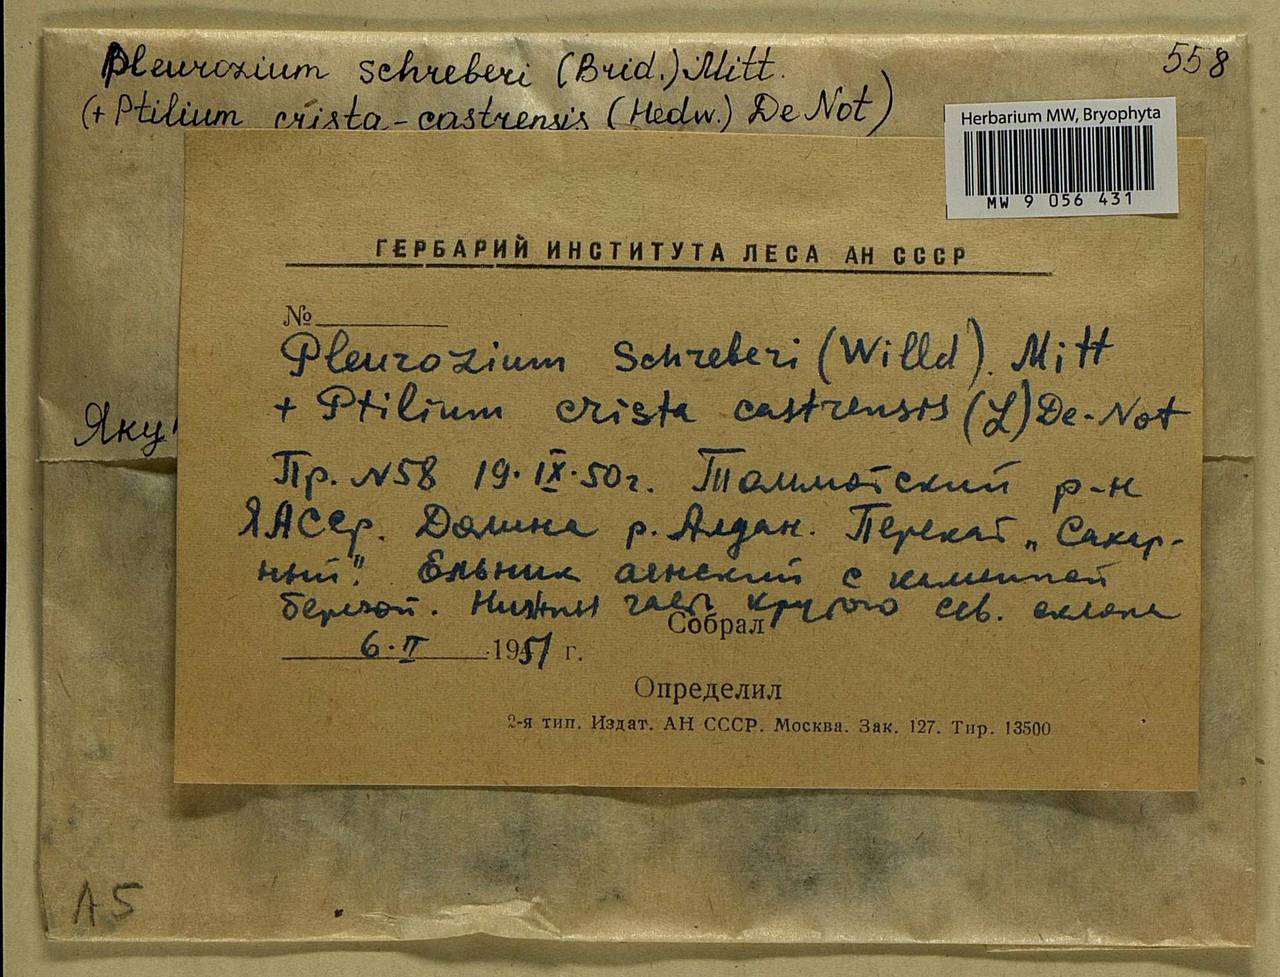 Pleurozium schreberi (Brid.) Mitt.
558
(+ Ptilium crista-castrensis (Hedw.) De Not)
Herbarium MW, Bryophyta
MW 9 056 431
ГЕРБАРИЙ ИНСТИТУТА ЛЕСА АН СССР
№
Pleurozium Schreberi (Willd). Mitt
+ Ptilium crista castrensis (L) De-Not
Яку
Пр. N58 19·IX·50г. Томмотский р-н
ЯАССР. Долина р. Алдан. Перекат „Сахар-
ный". Ельник аянский с каменной
березой. Нижняя часть крутого сев. склона
Собрал
6·II 1951 г.
Определил
2-я тип. Издат. АН СССР. Москва. Зак. 127. Тир. 13500
А5